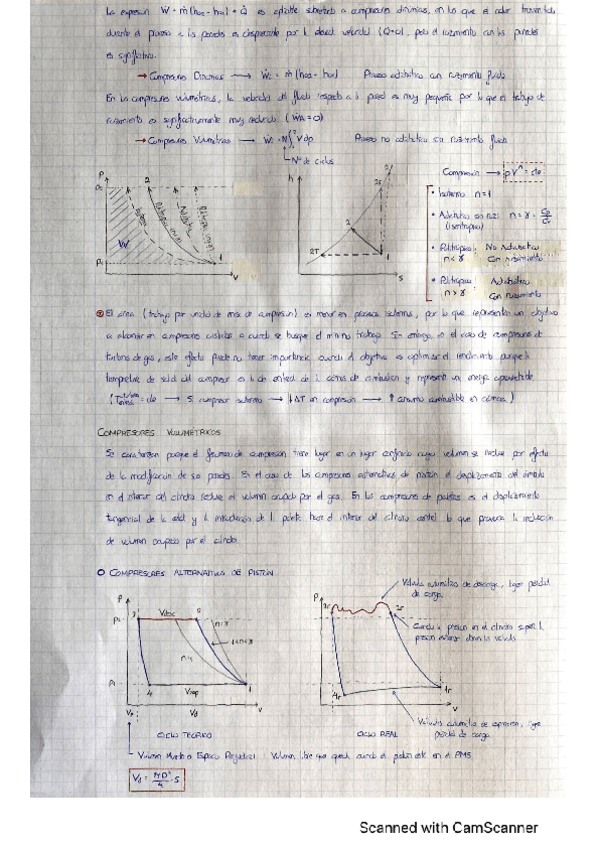 La expresión Ẇ = ṁ(h02 - h01) + Q̇ es aplicable sobretodo a compresores dinámicos, en los que el calor transmitido
durante el proceso a las paredes es despreciable por la elevada velocidad (Q=0), pero el rozamiento con las paredes
es significativo.
→ Compresores Dinámicos → Ẇc = ṁ(h02 - h01) Proceso adiabático con rozamiento fluido
En los compresores volumétricos, la velocidad del fluido respecto a la pared es muy pequeña por lo que el trabajo de
rozamiento es significativamente muy reducido (WR = 0)
→ Compresores Volumétricos → Ẇc = N∫Vdp Proceso no adiabático sin rozamiento fluido
Nº de ciclos
Compresión → pVⁿ = cte
• Isoterma n = 1
• Adiabática sin roz: n = γ = Cp/Cv
(isentrópica)
• Politrópica: No Adiabática
n < γ Con rozamiento
• Politrópica: Adiabática
n > γ Con rozamiento
P
P2
P1
W
Isoterma
V
h
2
2T
1
s
El área (trabajo por unidad de masa de compresión) es menor en procesos isotermos, por lo que representan un objetivo
a alcanzar en compresores cuando se busque el mínimo trabajo. Sin embargo, en el caso de compresores de
turbinas de gas, este efecto puede no tener importancia cuando el objetivo es optimizar el rendimiento porque la
temperatura de salida del compresor es la de entrada de la cámara de combustión y representa una energía aprovechable
= cte → Si compresor isotermo → ↓ΔT en compresión → ↑ consumo combustible en cámara)
COMPRESORES VOLUMÉTRICOS
Se caracterizan porque el fenómeno de compresión tiene lugar en un lugar confinado cuyo volumen se reduce por efecto
de la modificación de sus paredes. En el caso de los compresores alternativos de pistón el desplazamiento del émbolo
en el interior del cilindro reduce el volumen ocupado por el gas. En los compresores de paletas es el desplazamiento
tangencial de la y la introducción de la paleta hacia el interior del cilindro central lo que provoca la reducción
de volumen ocupado por el
COMPRESORES ALTERNATIVOS DE PISTÓN
Válvula automática de descarga, ligera pérdida
de carga
Cuando la presión en el cilindro supera la
presión exterior abre la válvula
P
P2
3
Vdesc
2
n=1
n=γ
1<n<γ
P1
4
Vasp
1
V0
Vd
V
P
1r
4r
V
Válvula automática de aspiración, ligera
pérdida de carga
CICLO TEÓRICO
CICLO REAL
Volumen Muerto o Espacio Perjudicial: Volumen libre que queda cuando el pistón está en el PMS
Vd = πD²/4 · S
Scanned with CamScanner